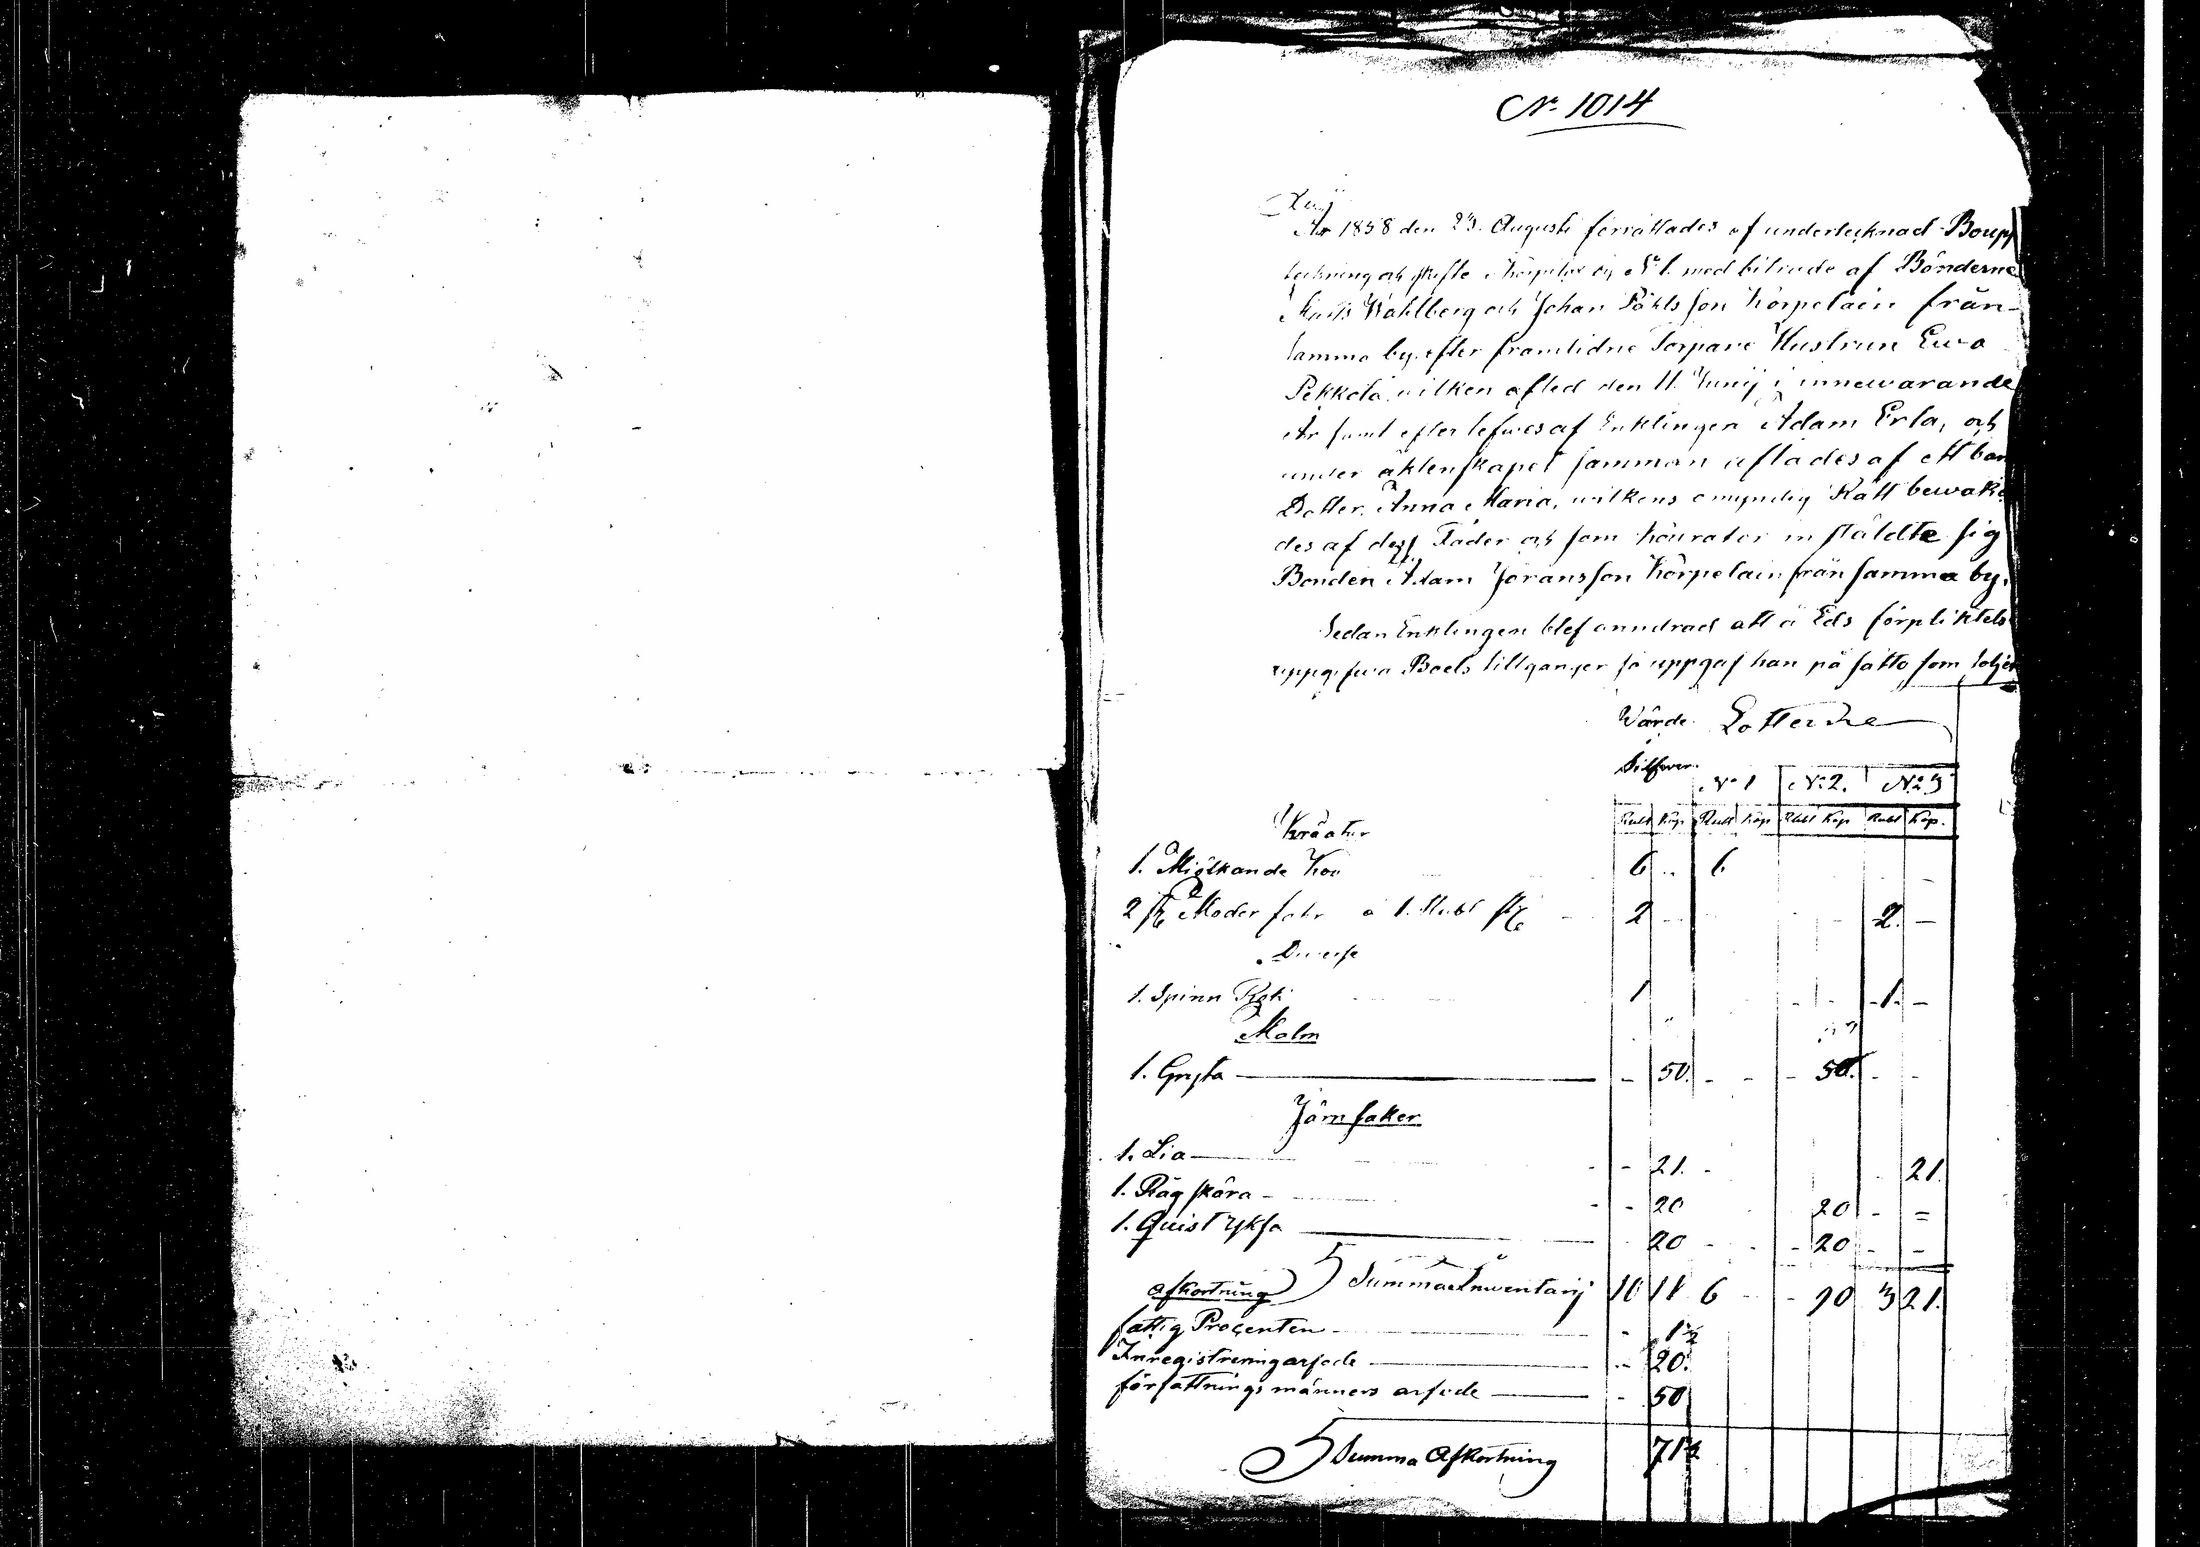 Nr 1014
År 1858 den 23. Augusti förrättades af undertecknad Boupp
teckning och skifte N:o 1. med biträde af Bönderne
Mats Wahlberg och Johan Påhlsson Korpelain från
samma by. efter framlidne Torpare Hustrun Ewa
Pekkola wilken afled den 11. Junij i innewarande
År samt efter lefwes af Enklingen Adam Erla, och
under äktenskapet samman aflades af ett barn
Dotter. Anna Maria, wilkens omyndig Rätt bewaka
des af dess Fader och som Kourator instäldte sig
Bonden Adam Jöransson Korpelain från samma by.
Sedan Enklingen blef anmdrad att å Eds förpliktels
uppgifwa Boets tillgånger så uppgaf han på sätto som följer
Wärde Lotterne
Silfwer.
N:o 1 N:o 2. N:o 3
Rubl Kop Rubl Kop Rubl Kop Rubl Kop.
Kräatur
1. Mjölkande Kou 6 .. 6
2 st Moder fahr a 1. Rubl st 2 - 2. -
Diverse
1. Spinn Rok 1 - 1. -
Malm
1. Gryta - 50. - - - 50. - -
Järn saker
1. Lia - 21. - 21.
1. Råg skära - 20 20 - =
1. Quist yksa 20 - - 20 - -
Summa Inwentarij 10 11 6 - - 90 3 21.
afkortning
fattig Procenten - 1½
Inregistreringarfode - 20.
författnings männers arfode - 50
Summa Afkortning 71½